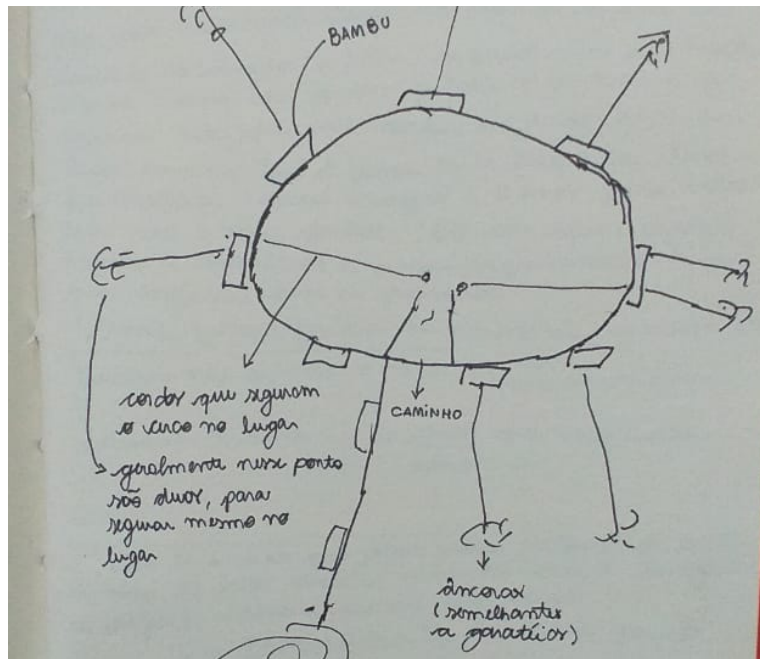 BAMBU
cordas que seguram
o cerco no lugar
CAMINHO
geralmente nesse ponto
são duas, para
segurar mesmo no
lugar
âncoras
(semelhantes
a garatéias)